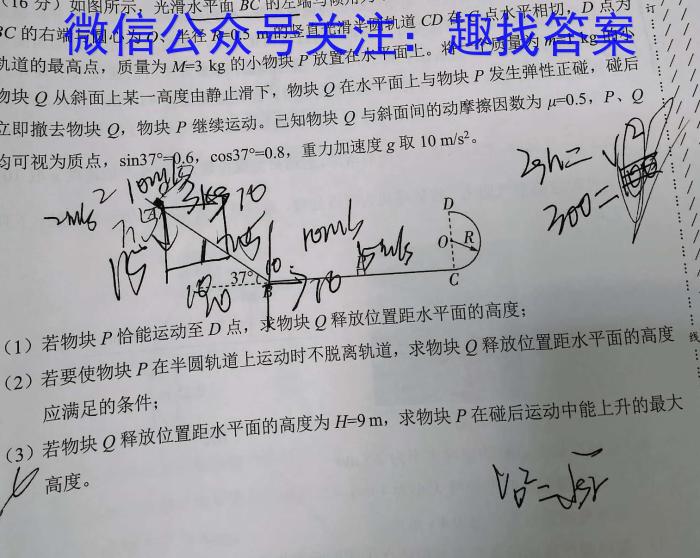 (16分)如图所示,光滑水平面BC的左端与倾角为
BC的右端与圆心为O、半径R=0.5 m的竖直光滑半圆轨道CD在C点水平相切,D点为
微信公众号关注:趣找答案
轨道的最高点,质量为M=3 kg的小物块P放置在水平面上。将一个质量为m=1 kg的小
物块Q从斜面上某一高度由静止滑下,物块Q在水平面上与物块P发生弹性正碰,碰后
立即撤去物块Q,物块P继续运动。已知物块Q与斜面间的动摩擦因数为μ=0.5,P、Q
均可视为质点,sin37°=0.6,cos37°=0.8,重力加速度g取10 m/s²。
2gh=
300=
10m/s
3kg
10
10m/s
15m/s
D
O
R
C
37°
B
(1)若物块P恰能运动至D点,求物块Q释放位置距水平面的高度;
(2)若要使物块P在半圆轨道上运动时不脱离轨道,求物块Q释放位置距水平面的高度
应满足的条件;
(3)若物块Q释放位置距水平面的高度为H=9 m,求物块P在碰后运动中能上升的最大
高度。
订
线